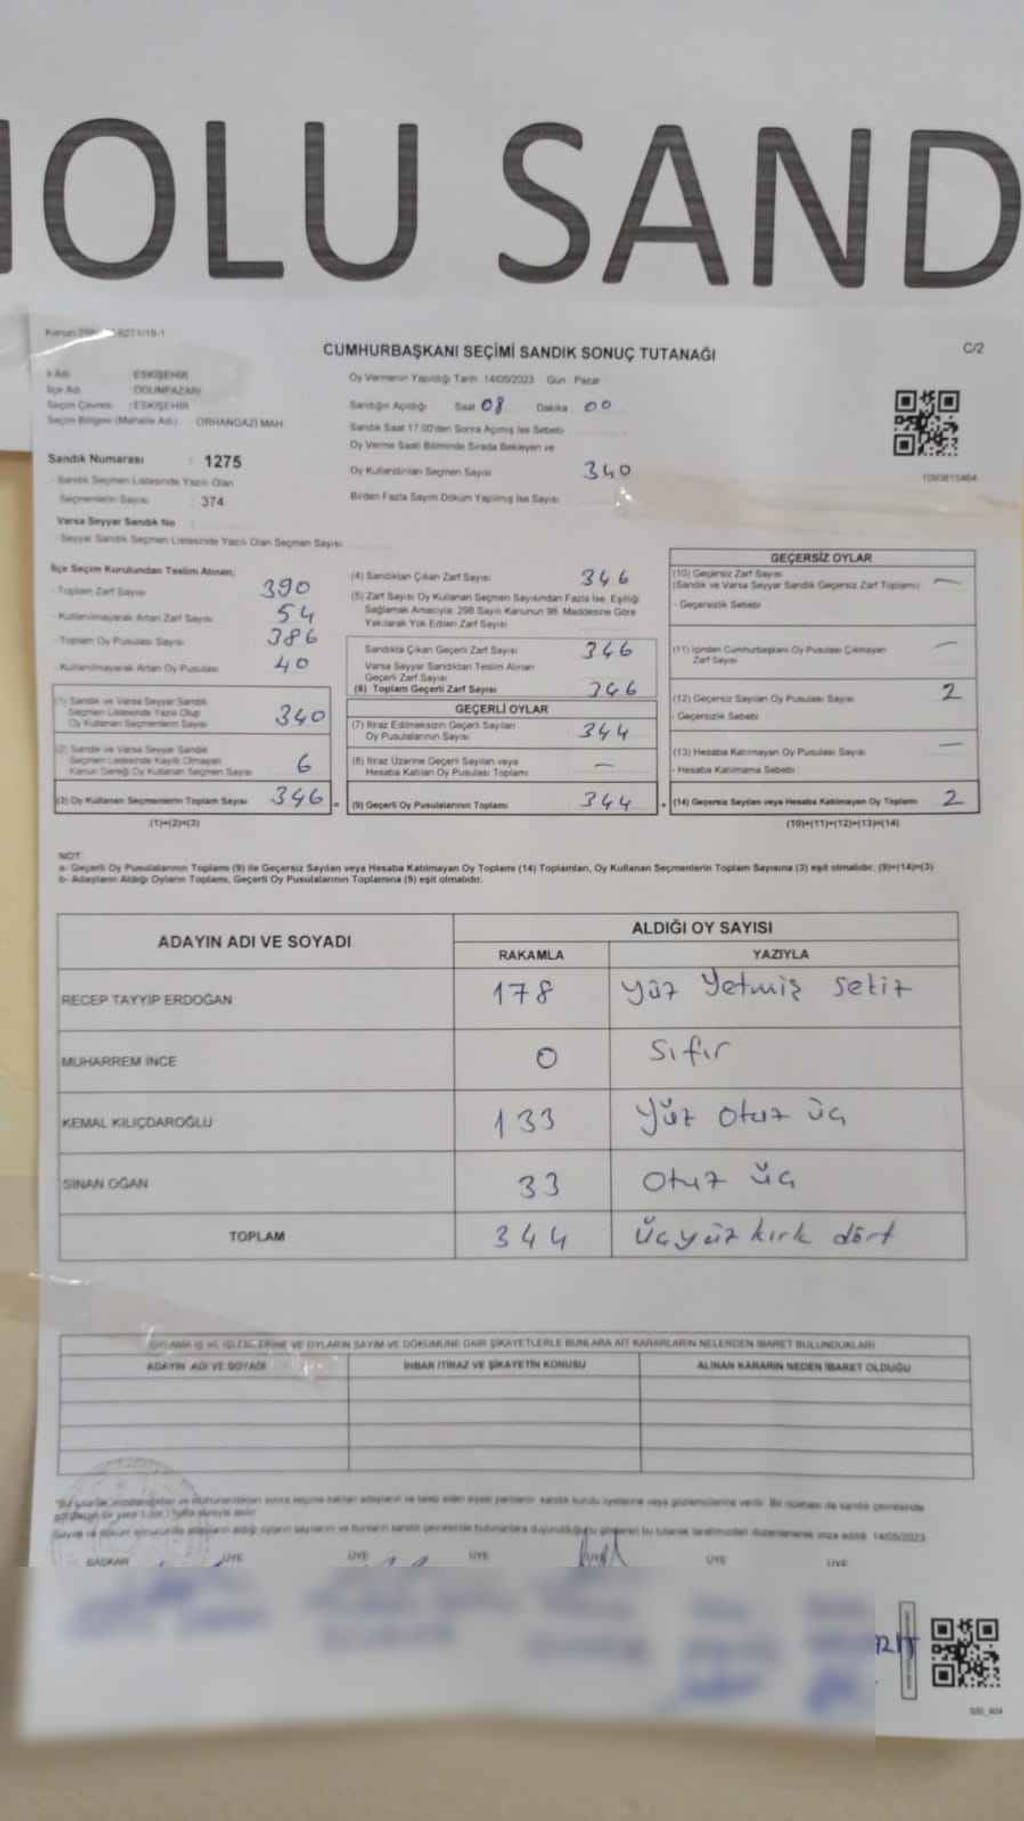 OLU SAND
CUMHURBAŞKANI SEÇİMİ SANDIK SONUÇ TUTANAĞI
C/2
İl Adı ESKİŞEHİR
İlçe Adı ODUNPAZARI
Seçim Çevresi : ESKİŞEHİR
Seçim Bölgesi (Mahalle Adı) : ORHANGAZİ MAH
Oy Vermenin Yapıldığı Tarih 14/05/2023 Gün : Pazar
Sandığın Açıldığı Saat 08 Dakika : 00
Sandık Saat 17.00'den Sonra Açılmış İse Sebebi
Oy Verme Saati Bitiminde Sırada Bekleyen ve
Oy Kullandırılan Seçmen Sayısı 340
Birden Fazla Sayım Döküm Yapılmış İse Sayısı
Sandık Numarası : 1275
Sandık Seçmen Listesinde Yazılı Olan
Seçmenlerin Sayısı 374
Varsa Seyyar Sandık No
Seyyar Sandık Seçmen Listesinde Yazılı Olan Seçmen Sayısı
İlçe Seçim Kurulundan Teslim Alınan;
Toplam Zarf Sayısı 390
Kullanılmayarak Artan Zarf Sayısı 54
Toplam Oy Pusulası Sayısı 386
Kullanılmayarak Artan Oy Pusulası 40
(1) Sandık ve Varsa Seyyar Sandık
Seçmen Listesinde Yazılı Olup
Oy Kullanan Seçmenlerin Sayısı 340
(2) Sandık ve Varsa Seyyar Sandık
Seçmen Listesinde Kayıtlı Olmayan
Kanun Gereği Oy Kullanan Seçmen Sayısı 6
(3) Oy Kullanan Seçmenlerin Toplam Sayısı 346 =
(1)+(2)=(3)
(4) Sandıktan Çıkan Zarf Sayısı 346
(5) Zarf Sayısı Oy Kullanan Seçmen Sayısından Fazla İse, Eşitliği
Sağlamak Amacıyla 298 Sayılı Kanunun 98. Maddesine Göre
Yakılarak Yok Edilen Zarf Sayısı
Sandıkta Çıkan Geçerli Zarf Sayısı 346
Varsa Seyyar Sandıktan Teslim Alınan
Geçerli Zarf Sayısı
(6) Toplam Geçerli Zarf Sayısı 346
GEÇERLİ OYLAR
(7) İtiraz Edilmeksizin Geçerli Sayılan
Oy Pusulalarının Sayısı 344
(8) İtiraz Üzerine Geçerli Sayılan veya
Hesaba Katılan Oy Pusulası Toplamı —
(9) Geçerli Oy Pusulalarının Toplamı 344 +
GEÇERSİZ OYLAR
(10) Geçersiz Zarf Sayısı
(Sandık ve Varsa Seyyar Sandık Geçersiz Zarf Toplamı) —
- Geçersizlik Sebebi
(11) İçinden Cumhurbaşkanı Oy Pusulası Çıkmayan
Zarf Sayısı —
(12) Geçersiz Sayılan Oy Pusulası Sayısı 2
- Geçersizlik Sebebi
(13) Hesaba Katılmayan Oy Pusulası Sayısı —
- Hesaba Katılmama Sebebi
(14) Geçersiz Sayılan veya Hesaba Katılmayan Oy Toplamı 2
(10)+(11)+(12)+(13)=(14)
NOT
a- Geçerli Oy Pusulalarının Toplamı (9) ile Geçersiz Sayılan veya Hesaba Katılmayan Oy Toplamı (14) Toplamları, Oy Kullanan Seçmenlerin Toplam Sayısına (3) eşit olmalıdır. (9)+(14)=(3)
b- Adayların Aldığı Oyların Toplamı, Geçerli Oy Pusulalarının Toplamına (9) eşit olmalıdır.
ADAYIN ADI VE SOYADI ALDIĞI OY SAYISI
RAKAMLA YAZIYLA
RECEP TAYYİP ERDOĞAN 178 yüz yetmiş sekiz
MUHARREM İNCE 0 sıfır
KEMAL KILIÇDAROĞLU 133 yüz otuz üç
SİNAN OĞAN 33 otuz üç
TOPLAM 344 üçyüz kırk dört
ADAYIN ADI VE SOYADI İHBAR İTİRAZ VE ŞİKAYETİN KONUSU ALINAN KARARIN NEDEN İBARET OLDUĞU
BAŞKAN ÜYE ÜYE ÜYE ÜYE ÜYE ÜYE